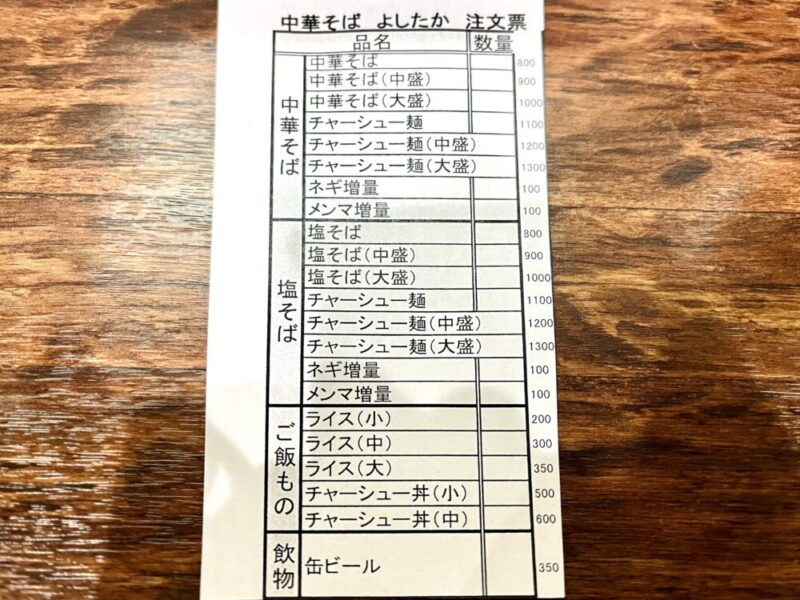 中華そば よしたか 注文票
品名 数量
中華そば
中華そば 800
中華そば(中盛) 900
中華そば(大盛) 1000
チャーシュー麺 1100
チャーシュー麺(中盛) 1200
チャーシュー麺(大盛) 1300
ネギ増量 100
メンマ増量 100
塩そば
塩そば 800
塩そば(中盛) 900
塩そば(大盛) 1000
チャーシュー麺 1100
チャーシュー麺(中盛) 1200
チャーシュー麺(大盛) 1300
ネギ増量 100
メンマ増量 100
ご飯もの
ライス(小) 200
ライス(中) 300
ライス(大) 350
チャーシュー丼(小) 500
チャーシュー丼(中) 600
飲物
缶ビール 350